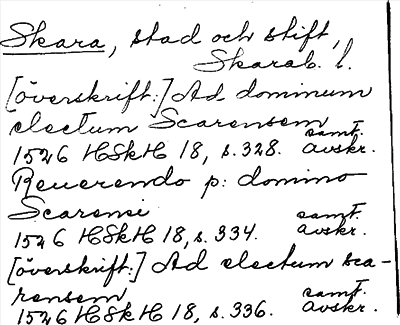 Skara, stad och stift,
Skarab. l.
[överskrift:] Ad dominum
electum Scarensem
1526 HSkH 18, s. 328. samt. avskr.
Reuerendo p: domino
Scarensi
1526 HSkH 18, s. 334. samt. avskr.
[överskrift:] Ad electum sca-
rensem
1526 HSkH 18, s. 336. samt. avskr.